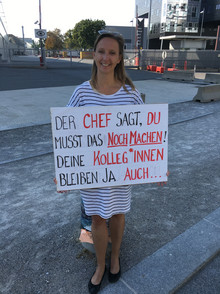 DER CHEF SAGT, DU
MUSST DAS NOCH MACHEN!
DEINE KOLLEG*INNEN
BLEIBEN JA AUCH...